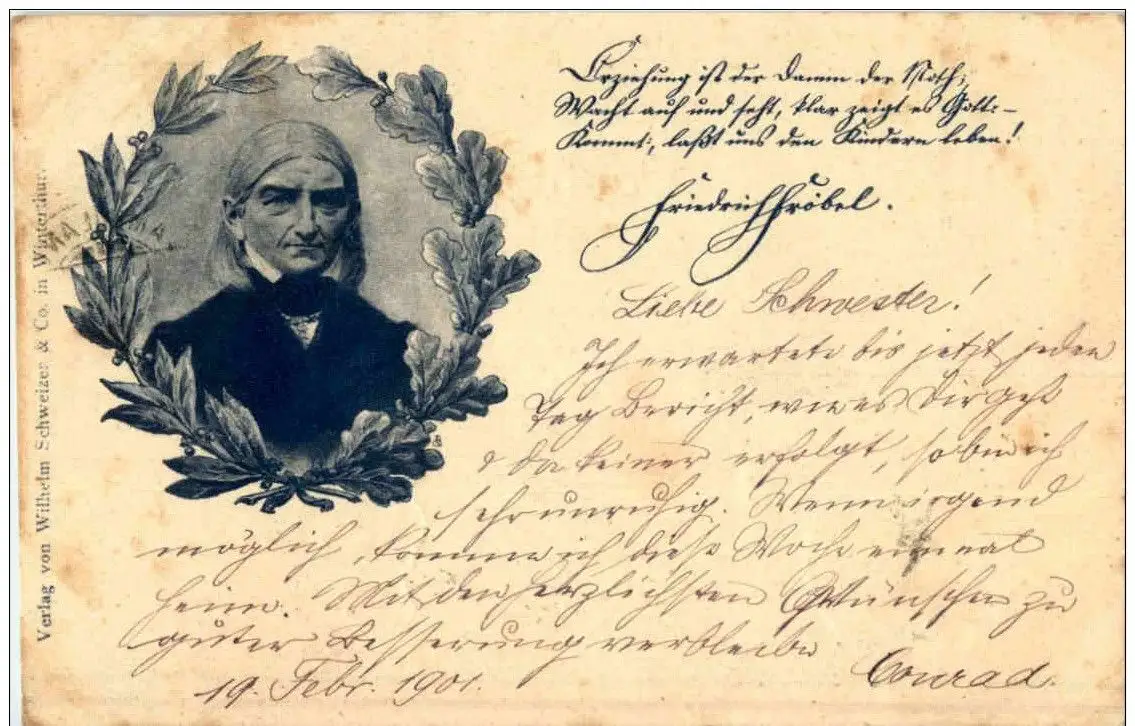 Erziehung ist der Damm der Noth;
Wacht auf und seht, klar zeigt es Gott:-
Kommt, laßt uns den Kindern leben!
Friedrich Fröbel.
Liebe Schwester!
Ich erwartete bis jetzt jeden
Tag Bericht, wie es Dir geht
& da keiner erfolgt, so bin ich
sehr unruhig. Wenn irgend
möglich, komme ich diese Woche einmal
heim. Mit den herzlichsten Wünschen zu
guter Besserung verbleibe
Conrad.
19. Febr. 1901.
Verlag von Wilhelm Schweizer & Co. in Winterthur.